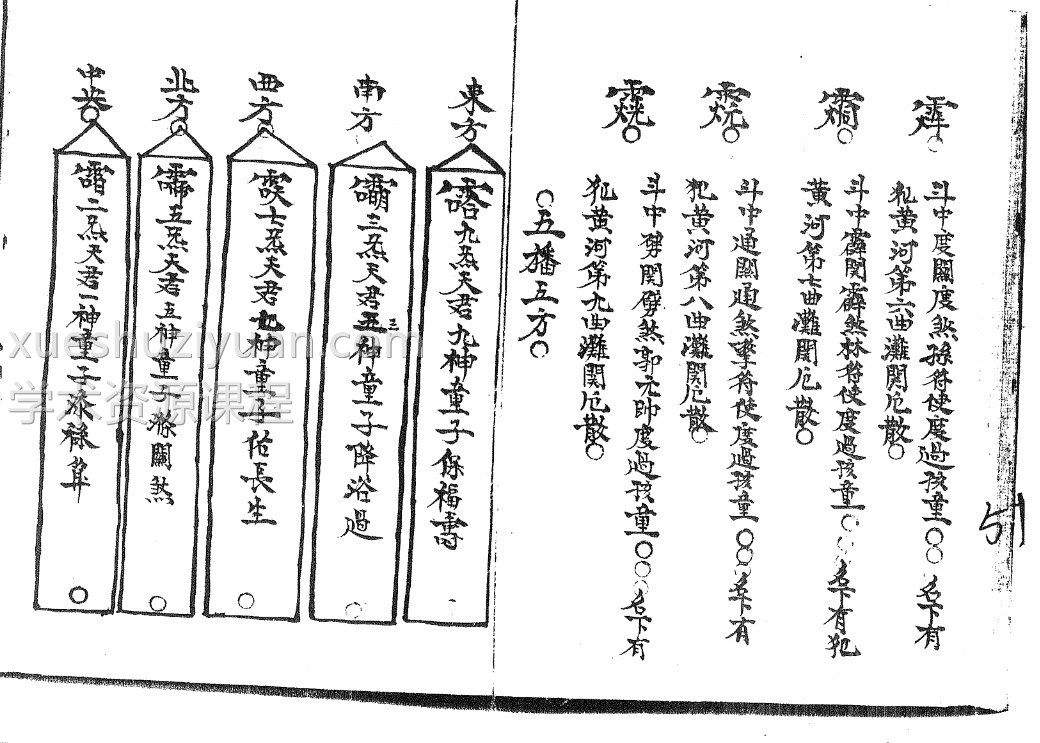 斗中度關度煞孫符使度過孩童〇〇名下有
犯黃河第六曲灘関厄散〇
斗中霹関霹煞林符使度過孩童〇〇名下有犯
黃河第七曲灘関厄散〇
斗中通關通煞擎符使度過孩童〇〇〇名下有
犯黃河第八曲灘関厄散〇
斗中劈関劈煞郭元帥度過孩童〇〇〇名下有
犯黃河第九曲灘関厄散〇
〇五播五方〇
東方
九炁天君九神童子保福壽
南方
三炁天君三神童子降浴過
西方
七炁天君七神童子佑長生
北方
五炁天君五神童子滌關煞
中央
二炁天君一神童子添祿算
51
xueshuziyuan.com
学术资源课程